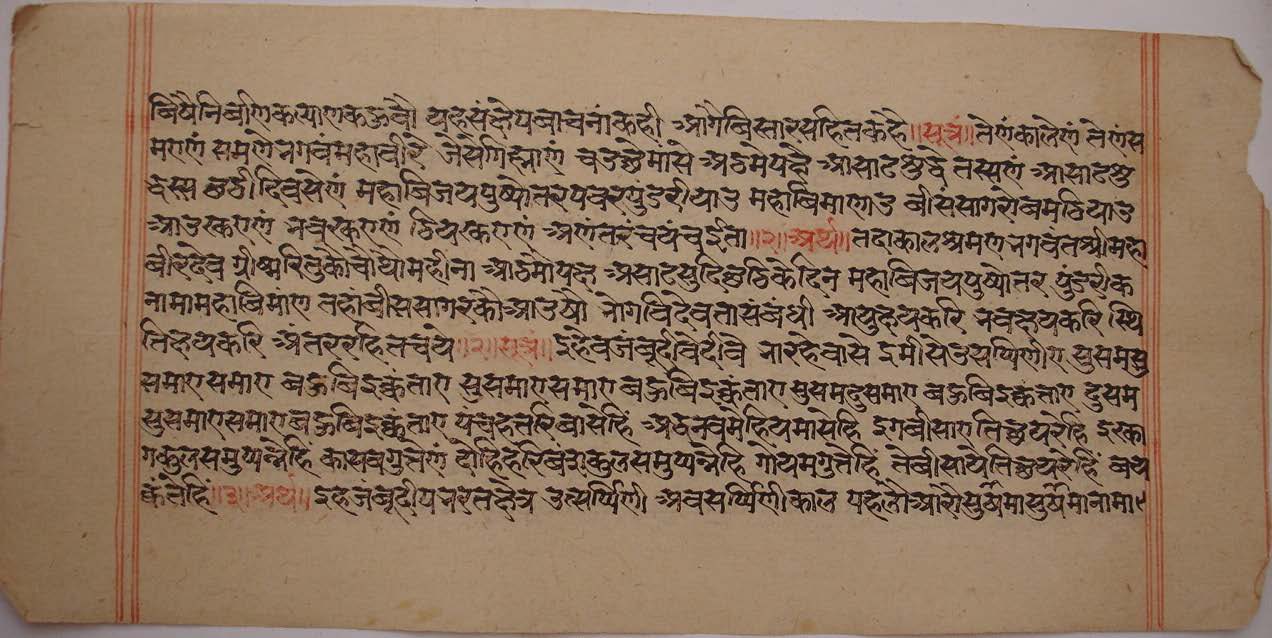 बिषैनिर्वाणकल्याणकऊवौ यहसंक्षेपबाचनांकही आगैबिस्तारसहितकहहै॥सूत्रं॥तेणंकालेणं तेणंस
मएणं समणेभगवंमहावीरे जेसेगिह्माणं चउछेमासे अठमेपक्षे आसाढशुद्धे तस्सणं आसाढशु
द्धस्स छठीदिवसेणं महाबिजयपुष्फोत्तरपवरपुंडरीयाउ महाबिमाणाउ बीसंसागरोबमठियाउ
आउरकएणं भवरकएणं ठियरकएणं अणंतरंचयंचईत्ता॥२॥अर्थ॥तदाकालश्रमणभगवंतश्रीमहा
बीरदेव ग्रीष्मरितुकोचोथोमहीना आठमोपक्ष असाढसुदिछठिकेदिन महाबिजयपुष्पोत्तर पुंडरीक
नामामहाबिमांण तहांबीससागरकौआउषो भोगविदेवतासंबंधी आयुक्षयकरि भवक्षयकरि स्थि
तिक्षयकरि अंतररहितचवे॥२॥सूत्रं॥इहेवजंबूदीवेदीवे भारहेवासे इमीसेउसप्पिणीए सुसमसु
समाएसमाए बऊबिइक्कंताए सुसमाएसमाए बऊबिइक्कंताए सुसमदुसमाए बऊबिइक्कंताए दुसम
सुसमाएसमाएबऊबिइक्कंताए पंचहत्तरिबासेहिं अठनवमेहियमासेहि इगबीसाएतिछयरेहिं इरका
गकुलसमुप्पन्नेहिं कासवगुत्तेणं दोहिहरिबंसकुलसमुप्पन्नेहि गोयमगुत्तेहिं तेबीसायेतिछयरेहिं बय
क्कंतेहिं॥३॥अर्थ॥इहजंबूदीपभरतक्षेत्र उत्सर्प्पिणी अवसर्प्पिणीकाल पहलौआरोसुषमासुषमानामा